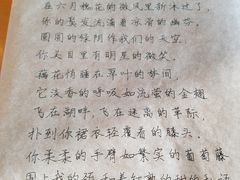 在六月槐花的微风里新沐过了，
你的鬓发流滴着凉爽的幽芬。
圆圆的绿阴作我们的天空，
你美目里有明星的微笑。
藕花悄睡在翠叶的梦间，
它淡香的呼吸如流萤的金翅
飞在湖畔，飞在迷离的草际，
扑到你裙衣轻覆着的膝头。
你柔柔的手臂如繁实的葡萄藤
围上我的颈